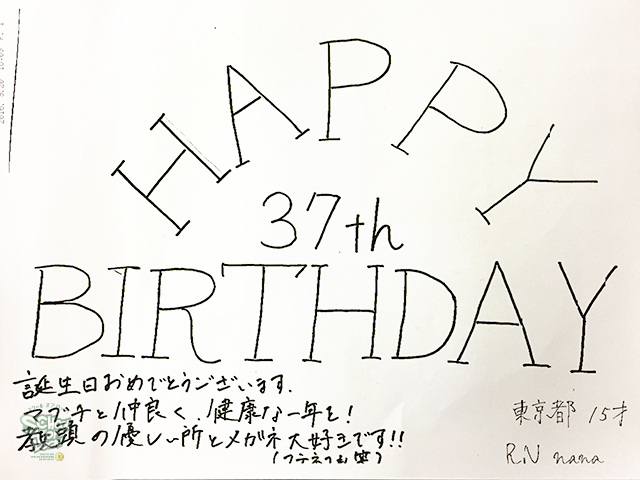 HAPPY
37th
BIRTHDAY
誕生日おめでとうございます.
マブチと仲良く、健康な一年を!
教頭の優しい所とメガネ大好きです!!
東京都 15才
RN nana